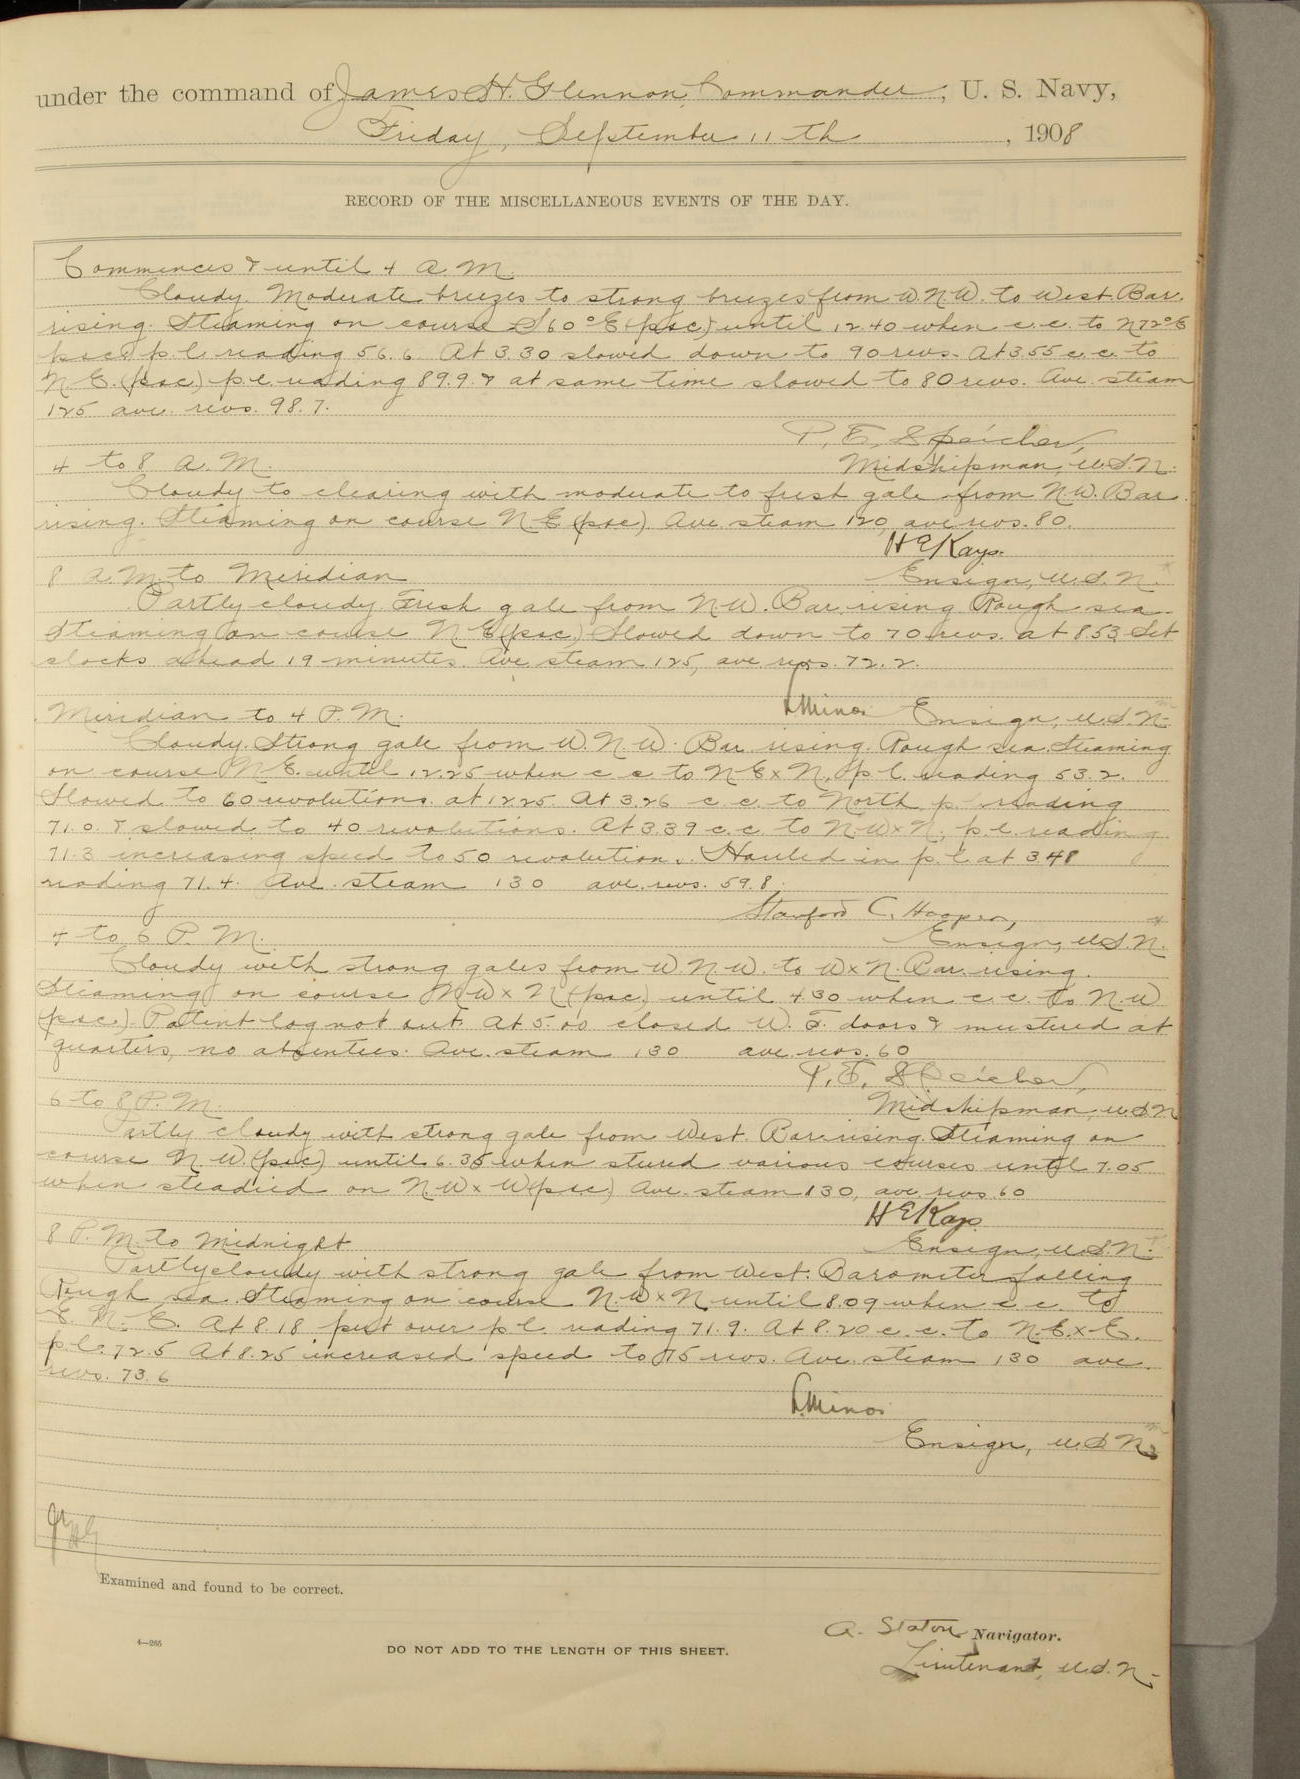 under the command of James H. Glennon, Commander, U. S. Navy,
Friday, September 11th, 1908
RECORD OF THE MISCELLANEOUS EVENTS OF THE DAY.
Commences & until 4 A.M.
Cloudy. Moderate breezes to strong breezes from W.N.W. to West. Bar.
rising. Steaming on course S 60° E (psc) until 12.40 when c.c. to N 72° E
psc. p.l. reading 56.6. At 3.30 slowed down to 90 revs. At 3.55 c.c. to
N.E. (psc) p.l. reading 89.9 & at same time slowed to 80 revs. Ave. steam
125 ave. revs. 98.7.
P. E. Speicher,
4 to 8 A.M. Midshipman, U.S.N.
Cloudy to clearing with moderate to fresh gale from N.W. Bar.
rising. Steaming on course N.E (psc). Ave steam 120, ave revs. 80.
H E Kays.
8 A.M. to Meridian Ensign, U.S.N.
Partly cloudy. Fresh gale from N.W. Bar. rising Rough sea.
Steaming on course N E (psc) Slowed down to 70 revs. at 8.53 Set
clocks ahead 19 minutes. Ave steam 125, ave revs. 72.2.
L. Minor
Meridian to 4 P.M. Ensign, U.S.N.
Cloudy. Strong gale from W.N.W. Bar rising. Rough sea. Steaming
on course N.E. until 12.25 when c c to N E x N, p.l. reading 53.2.
Slowed to 60 revolutions at 12.25. At 3.26 c.c. to North p.l. reading
71.0 & slowed to 40 revolutions. At 3.39 c.c. to N.W x N, p.l. reading
71.3 increasing speed to 50 revolution. Hauled in p.l. at 3.48
reading 71.4. Ave steam 130 ave. revs. 59.8.
Stanford C. Hooper,
4 to 6 P.M. Ensign, U.S.N.
Cloudy with strong gales from W.N.W. to W x N. Bar. rising.
Steaming on course N W x N (psc) until 4.30 when c.c. to N.W
(psc). Patent log not out. At 5.00 closed W. T. doors & mustered at
quarters, no absentees. Ave. steam 130 ave revs. 60
P. E. Speicher,
6 to 8 P.M. Midshipman, U.S.N
Partly cloudy with strong gale from West. Bar. rising. Steaming on
course N W (psc) until 6.35 when steered various courses until 7.05
when steadied on N.W x W (psc) Ave. steam 130, ave revs. 60
H E Kays
8 P.M. to Midnight Ensign, U.S.N.
Partly cloudy with strong gale from West. Barometer falling
Rough sea. Steaming on course N.W x N until 8.09 when c c. to
E. N. E. At 8.18 put over p l. reading 71.9. At 8.20 c.c. to N.E. x E.
p.l. 72.5 At 8.25 increased speed to 75 revs. Ave. steam 130 ave.
revs. 73.6
L. Minor
Ensign, U.S.N.
Examined and found to be correct.
A. Staton Navigator.
4—265
DO NOT ADD TO THE LENGTH OF THIS SHEET.
Lieutenant, U.S.N.